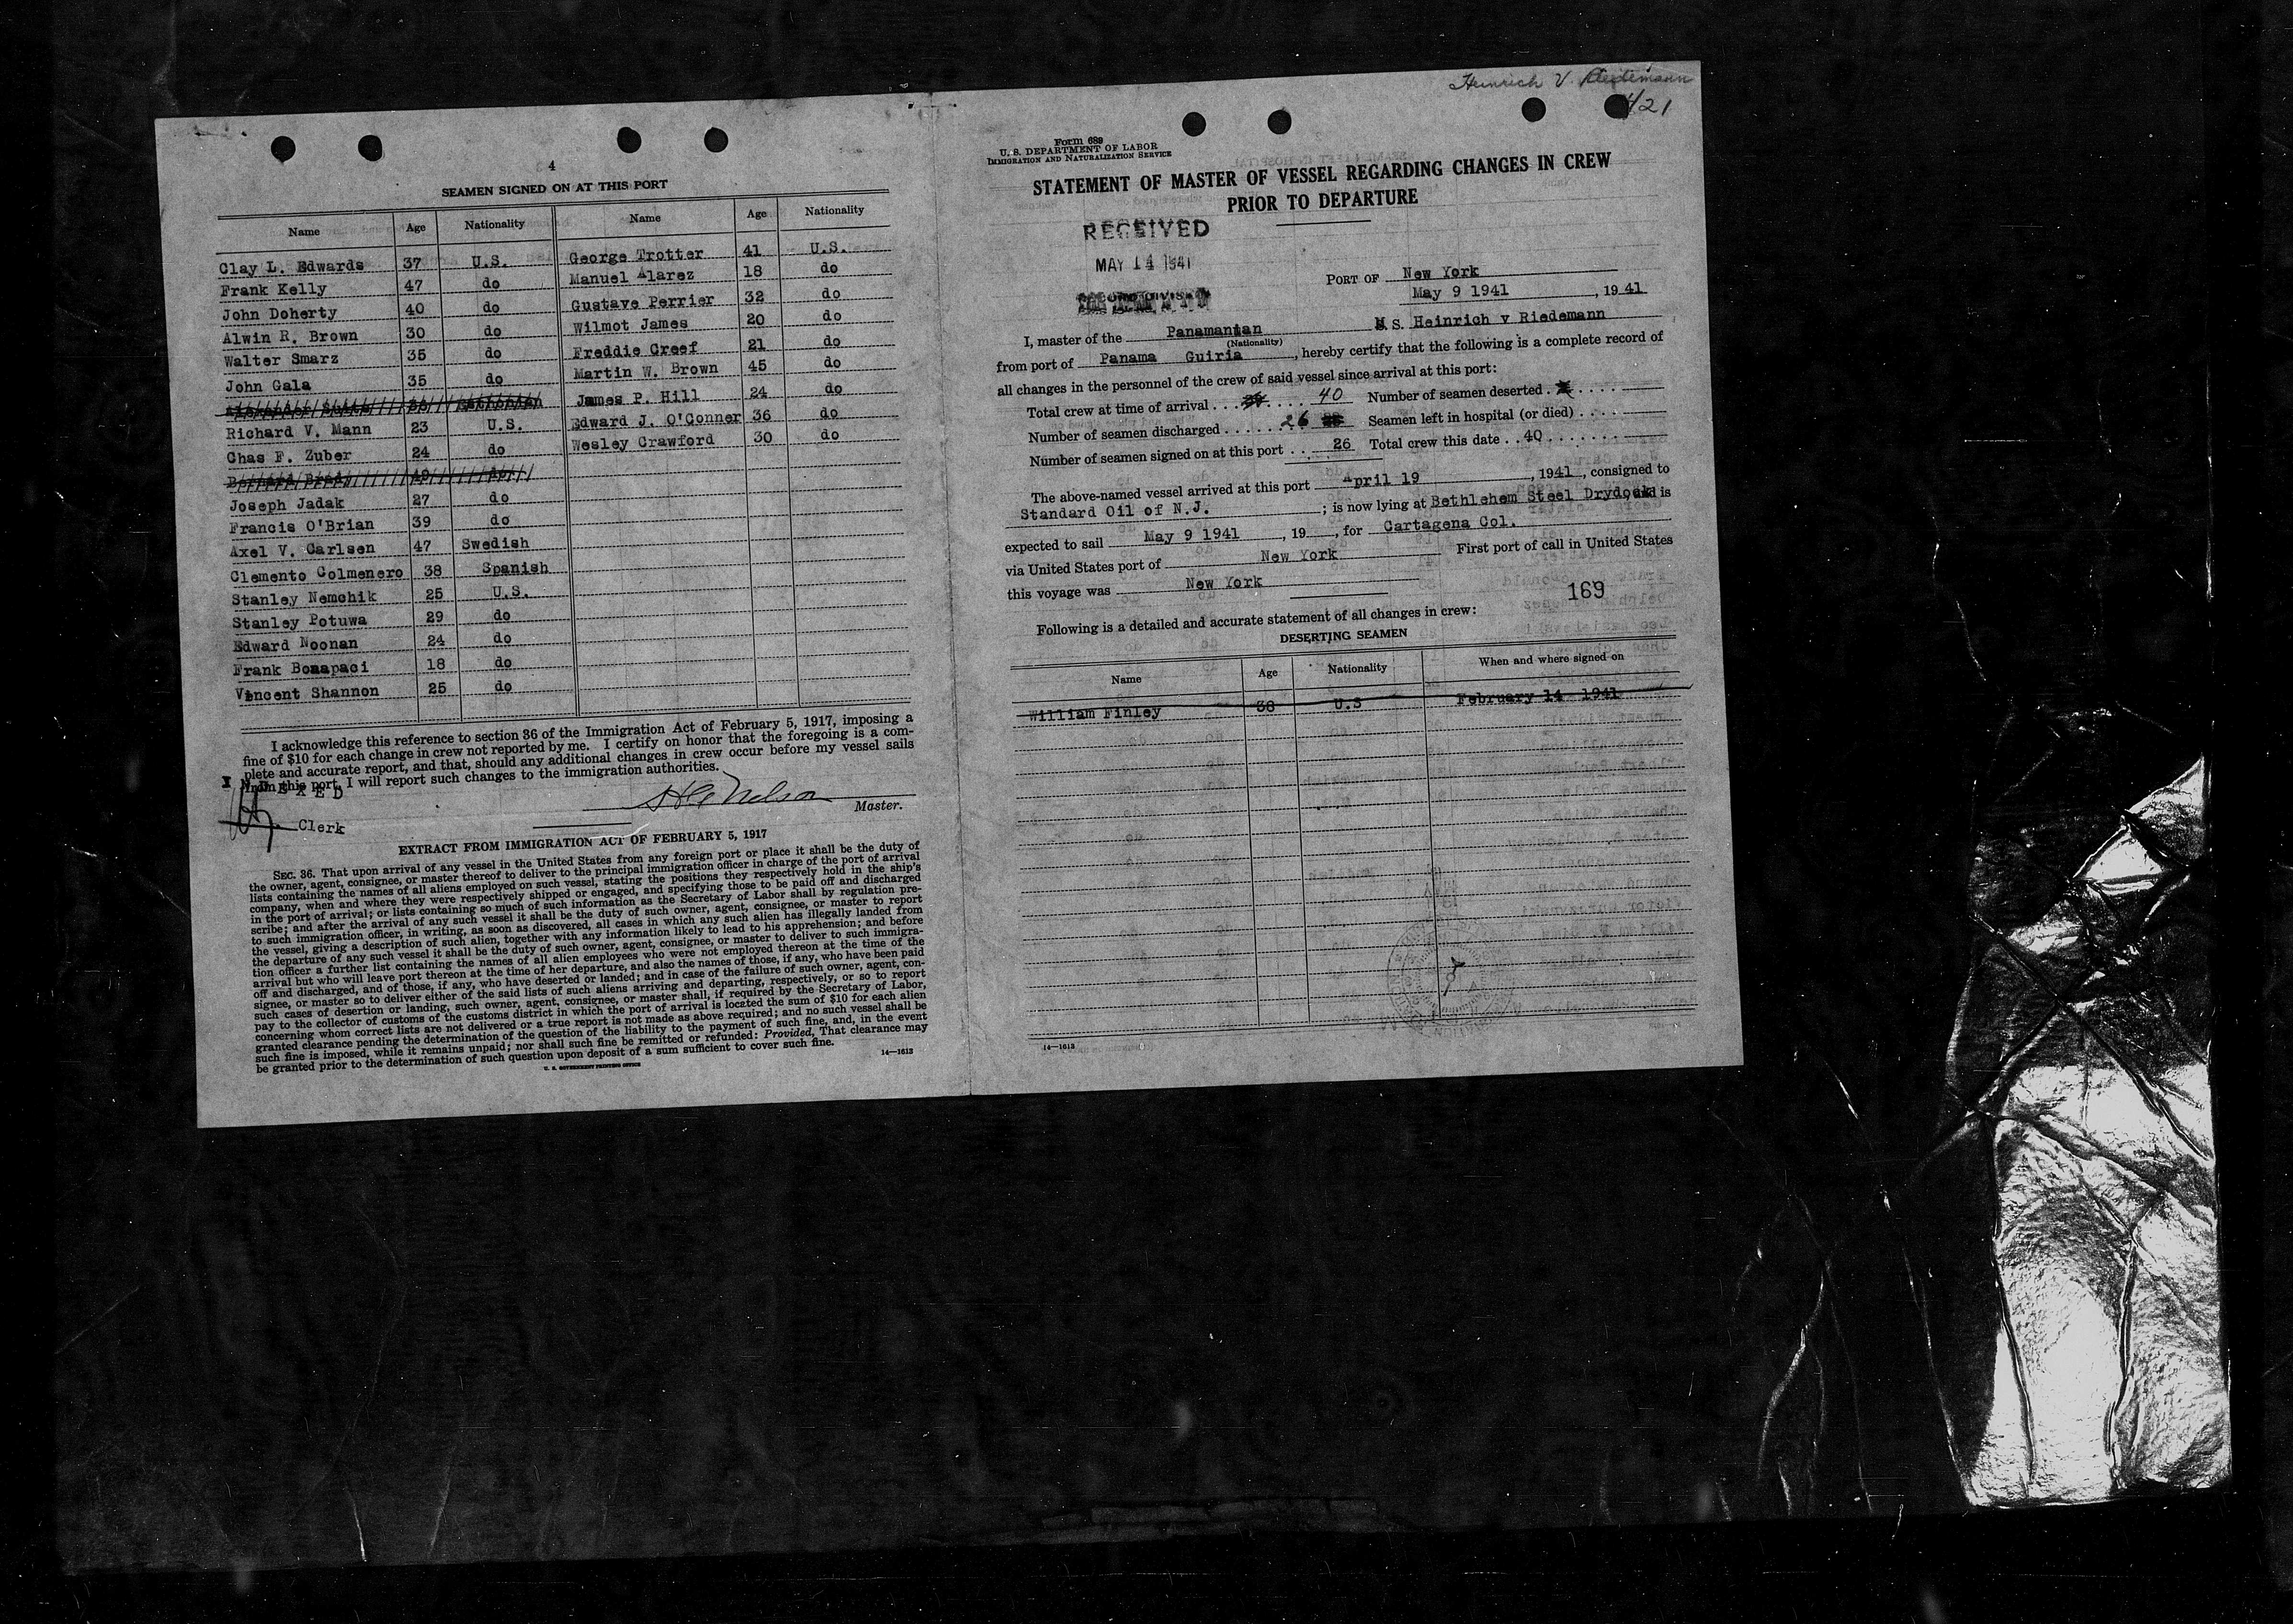 4
SEAMEN SIGNED ON AT THIS PORT
Name Age Nationality Name Age Nationality
Clay L. Edwards 37 U.S. George Trotter 41 U.S.
Frank Kelly 47 do Manuel Alarez 18 do
John Doherty 40 do Gustave Perrier 32 do
Alwin R. Brown 30 do Wilmot James 20 do
Walter Smarz 35 do Freddie Creef 21 do
John Gala 35 do Martin W. Brown 45 do
James P. Hill 24 do
Richard V. Mann 23 U.S. Edward J. O'Conner 36 do
Chas F. Zuber 24 do Wesley Crawford 30 do
Joseph Jadak 27 do
Francis O'Brian 39 do
Axel V. Carlsen 47 Swedish
Clemento Colmenero 38 Spanish
Stanley Nemchik 25 U.S.
Stanley Potuwa 29 do
Edward Noonan 24 do
Frank Bonapaci 18 do
Vincent Shannon 25 do
I acknowledge this reference to section 36 of the Immigration Act of February 5, 1917, imposing a
fine of $10 for each change in crew not reported by me. I certify on honor that the foregoing is a com-
plete and accurate report, and that, should any additional changes in crew occur before my vessel sails
from this port, I will report such changes to the immigration authorities.
INDEXED
Nelson Master.
Clerk
EXTRACT FROM IMMIGRATION ACT OF FEBRUARY 5, 1917
SEC. 36. That upon arrival of any vessel in the United States from any foreign port or place it shall be the duty of
the owner, agent, consignee, or master thereof to deliver to the principal immigration officer in charge of the port of arrival
lists containing the names of all aliens employed on such vessel, stating the positions they respectively hold in the ship's
company, when and where they were respectively shipped or engaged, and specifying those to be paid off and discharged
in the port of arrival; or lists containing so much of such information as the Secretary of Labor shall by regulation pre-
scribe; and after the arrival of any such vessel it shall be the duty of such owner, agent, consignee, or master to report
to such immigration officer, in writing, as soon as discovered, all cases in which any such alien has illegally landed from
the vessel, giving a description of such alien, together with any information likely to lead to his apprehension; and before
the departure of any such vessel it shall be the duty of such owner, agent, consignee, or master to deliver to such immigra-
tion officer a further list containing the names of all alien employees who were not employed thereon at the time of the
arrival but who will leave port thereon at the time of her departure, and also the names of those, if any, who have been paid
off and discharged, and of those, if any, who have deserted or landed; and in case of the failure of such owner, agent, con-
signee, or master so to deliver either of the said lists of such aliens arriving and departing, respectively, or so to report
such cases of desertion or landing, such owner, agent, consignee, or master shall, if required by the Secretary of Labor,
pay to the collector of customs of the customs district in which the port of arrival is located the sum of $10 for each alien
concerning whom correct lists are not delivered or a true report is not made as above required; and no such vessel shall be
granted clearance pending the determination of the question of the liability to the payment of such fine, and, in the event
such fine is imposed, while it remains unpaid; nor shall such fine be remitted or refunded: Provided, That clearance may
be granted prior to the determination of such question upon deposit of a sum sufficient to cover such fine.
14—1613
U. S. GOVERNMENT PRINTING OFFICE
Heinrich V. Riedemann
4/21
Form 689
U. S. DEPARTMENT OF LABOR
IMMIGRATION AND NATURALIZATION SERVICE
STATEMENT OF MASTER OF VESSEL REGARDING CHANGES IN CREW
PRIOR TO DEPARTURE
RECEIVED
MAY 14 1941
PORT OF New York
May 9 1941, 1941
I, master of the Panamanian M S. Heinrich v Riedemann
(Nationality)
from port of Panama Guiria, hereby certify that the following is a complete record of
all changes in the personnel of the crew of said vessel since arrival at this port:
Total crew at time of arrival 40 Number of seamen deserted
Number of seamen discharged 26 Seamen left in hospital (or died)
Number of seamen signed on at this port 26 Total crew this date 40
The above-named vessel arrived at this port April 19, 1941, consigned to
Standard Oil of N.J.; is now lying at Bethlehem Steel Drydock and is
expected to sail May 9 1941, 19, for Cartagena Col.
via United States port of New York First port of call in United States
this voyage was New York
169
Following is a detailed and accurate statement of all changes in crew:
DESERTING SEAMEN
Name Age Nationality When and where signed on
William Finley 38 U.S February 14 1941
14—1613